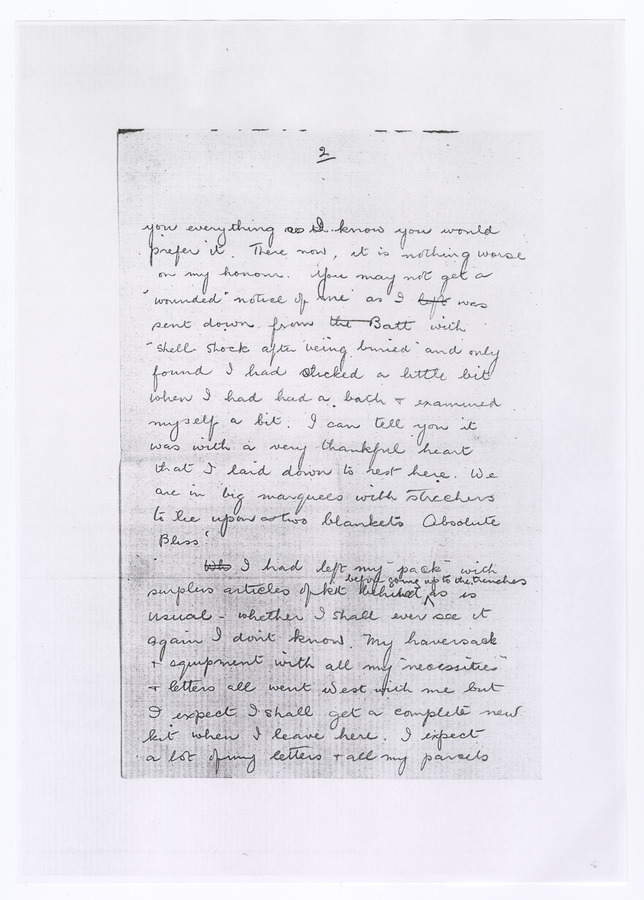 2
you everything as I know you would
prefer it. There now, it is nothing worse
on my honour. You may not get a
"wounded" notice of me as I left was
sent down from the Batt with
"shell shock after being buried" and only
found I had clicked a little bit
when I had had a bath & examined
myself a bit. I can tell you it
was with a very thankful heart
that I laid down to rest here. We
are in big marquees with stretchers
to lie upon & two blankets Absolute
Bliss!
Whe I had left my "pack" with
before going up to the trenches
surplus articles of kit behind, as is
usual - whether I shall ever see it
again I don't know. My haversack
& equipment with all my "necessities"
& letters all went West with me but
I expect I shall get a complete new
kit when I leave here. I expect
a lot of my letters & all my parcels